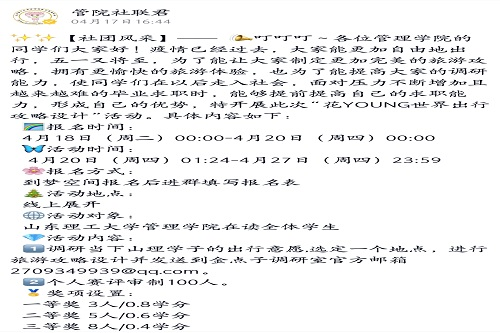 管院社联君
04月17日 16:44
【社团风采】—— 叮叮叮~各位管理学院的
同学们大家好！疫情已经过去，大家能更加自由地出
行，五一又将至，为了能让大家制定更加完美的旅游攻
略，拥有更愉快的旅游体验，也为了能提高大家的调研
能力，使同学们在以后走入社会，面对压力不断增加且
越来越难的毕业求职时，能够提前提高自己的求职能
力，形成自己的优势，特开展此次“花YOUNG世界出行
攻略设计”活动。具体内容如下：
报名时间：
4月18日（周二）00:00-4月20日（周四）00:00
活动时间：
4月20日（周四）01:24-4月27日（周四）23:59
报名方式：
到梦空间报名后进群填写报名表
活动地点：
线上展开
活动对象：
山东理工大学管理学院在读全体学生
活动内容：
1调研当下山理学子的出行意愿选定一个地点，进行
旅游攻略设计并发送到金点子调研室官方邮箱
2709349939@qq.com。
2个人赛评审制100人。
奖项设置：
一等奖 3人/0.8学分
二等奖 5人/0.6学分
三等奖 8人/0.4学分